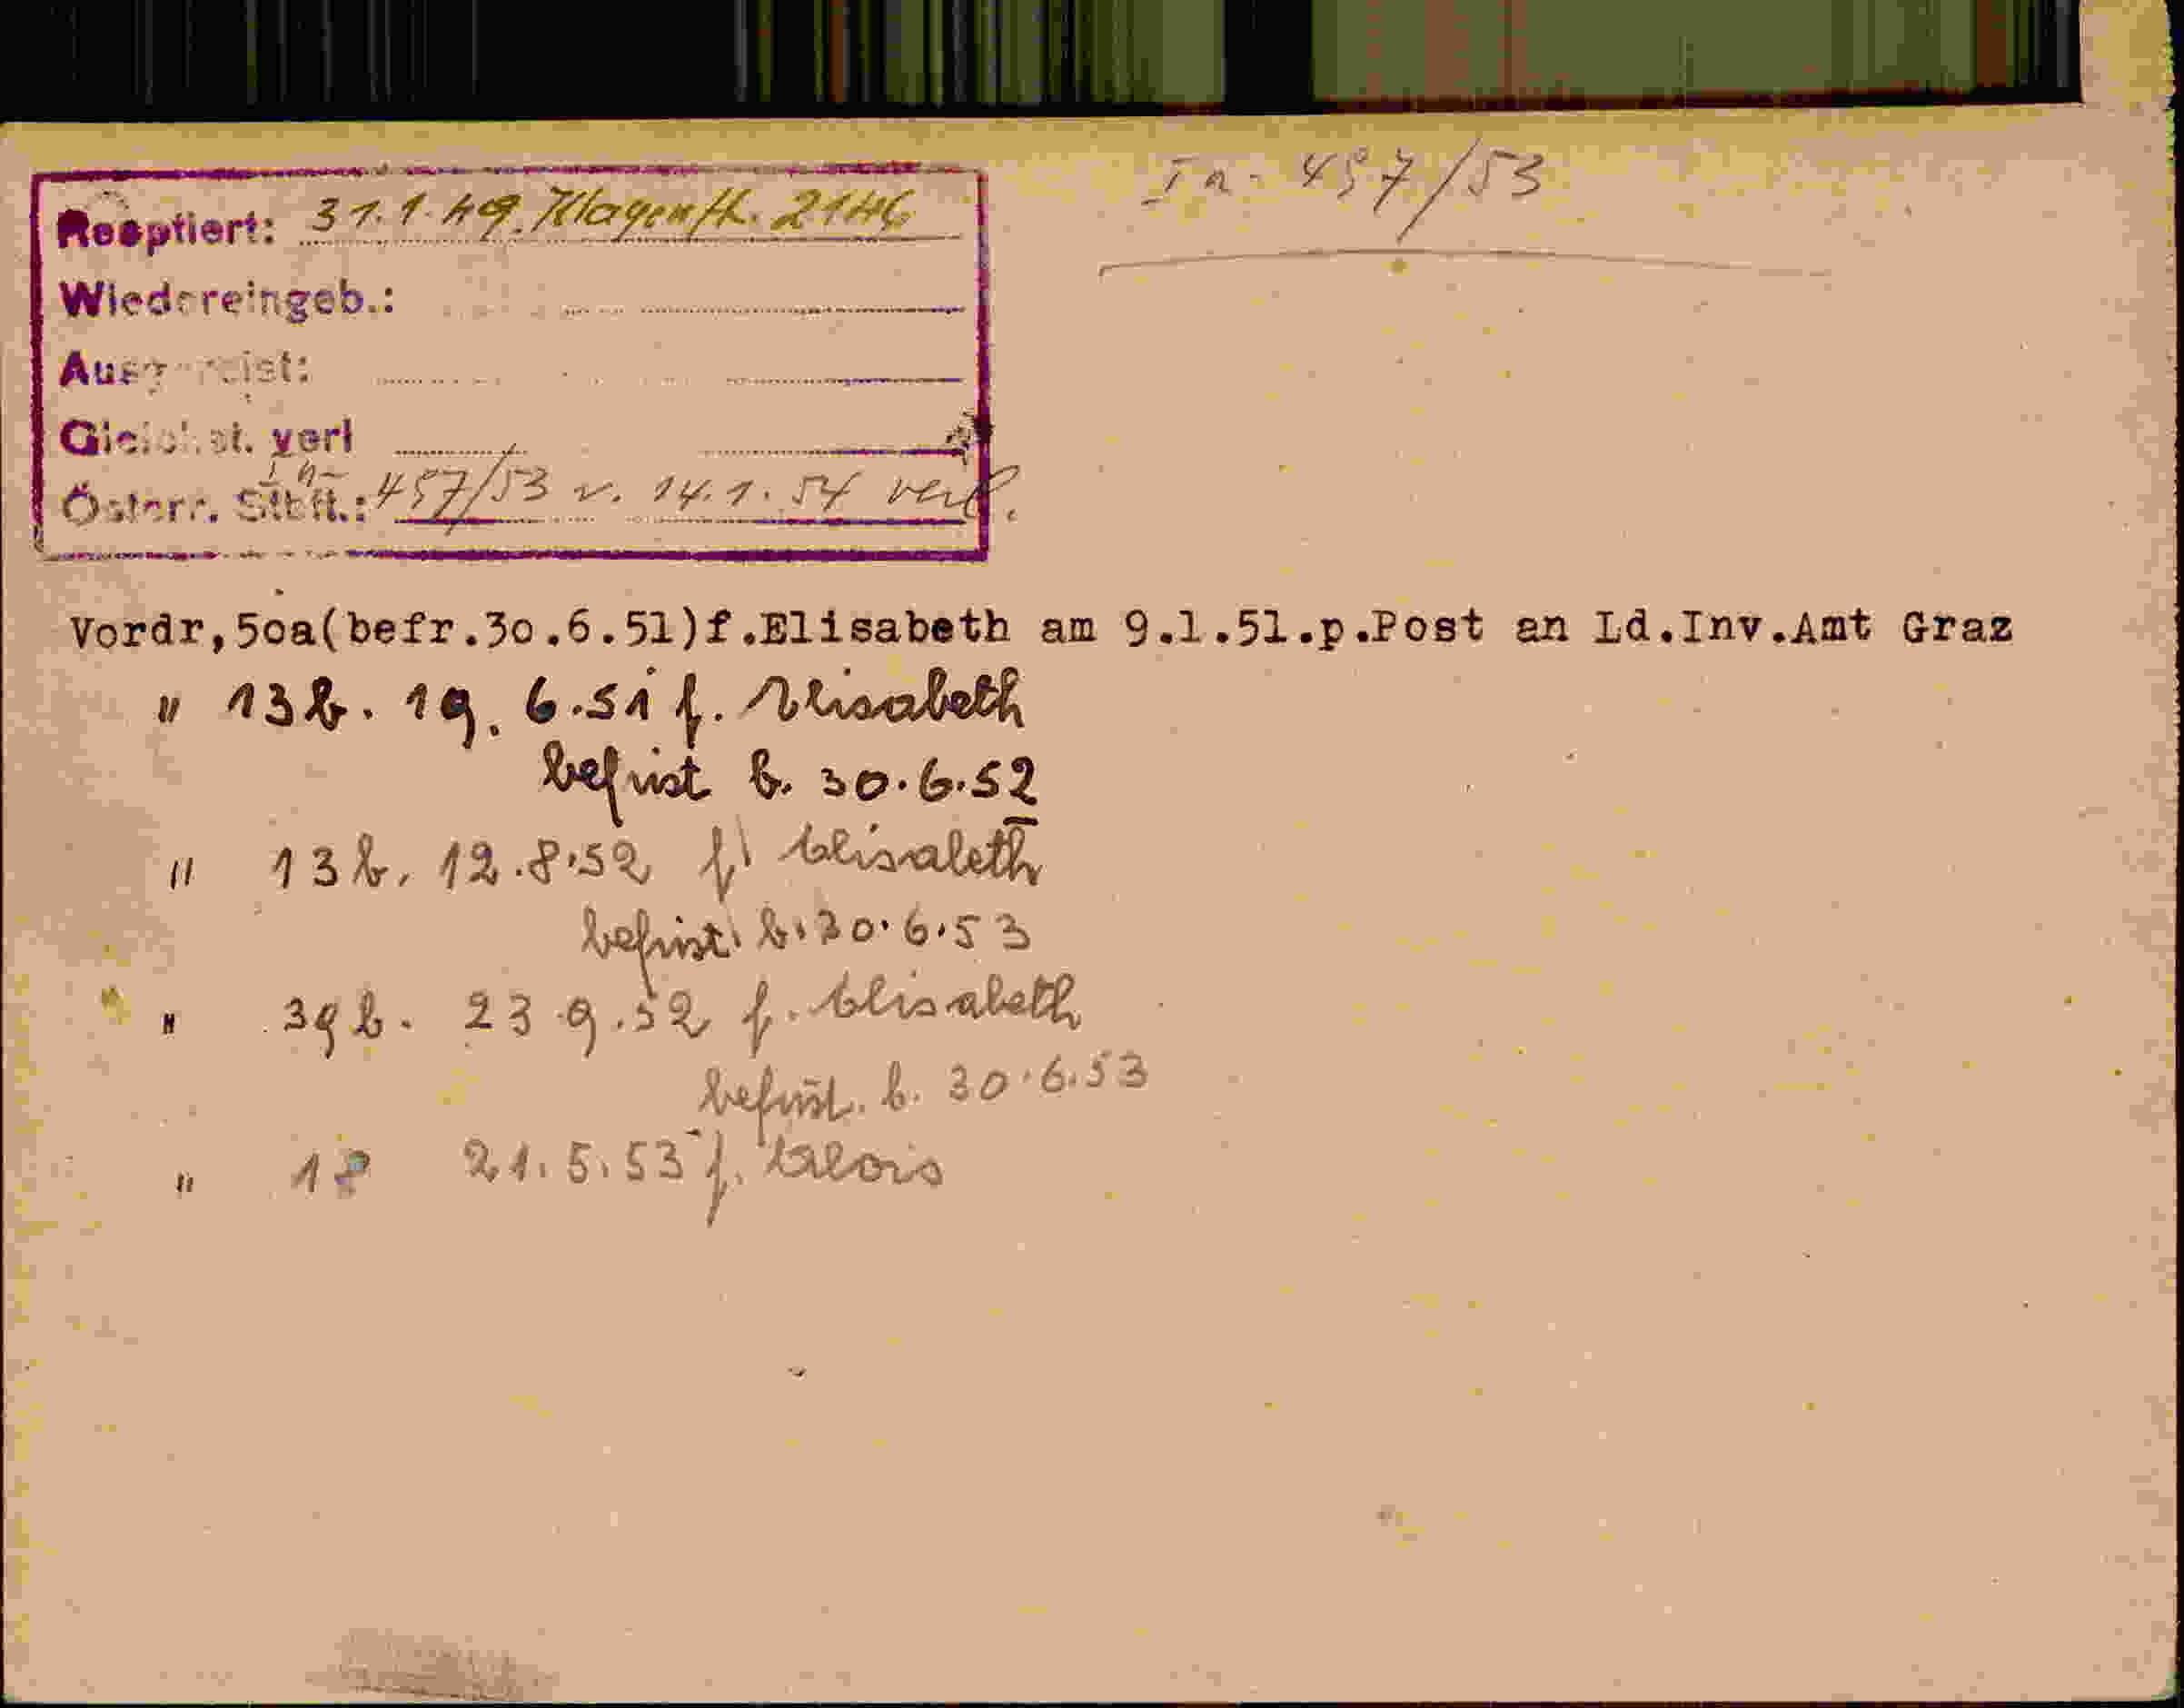 In- 457/53
Reoptiert: 31.1.49. Klagenft. 2146
Wiedereingeb.:
Ausgereist:
Gleichst. verl
In-
Österr. Stbft.: 457/53 v. 14.1.54 verl.
Vordr,5oa(befr.3o.6.51)f.Elisabeth am 9.1.51.p.Post an Ld.Inv.Amt Graz
" 13b. 19. 6.51 f. Elisabeth
befrist b. 30.6.52
" 13b. 12.8.52 f. Elisabeth
befrist. b. 30.6.53
" 39b. 23.9.52 f. Elisabeth
befrist. b. 30.6.53
" 21.5.53 f. Alois